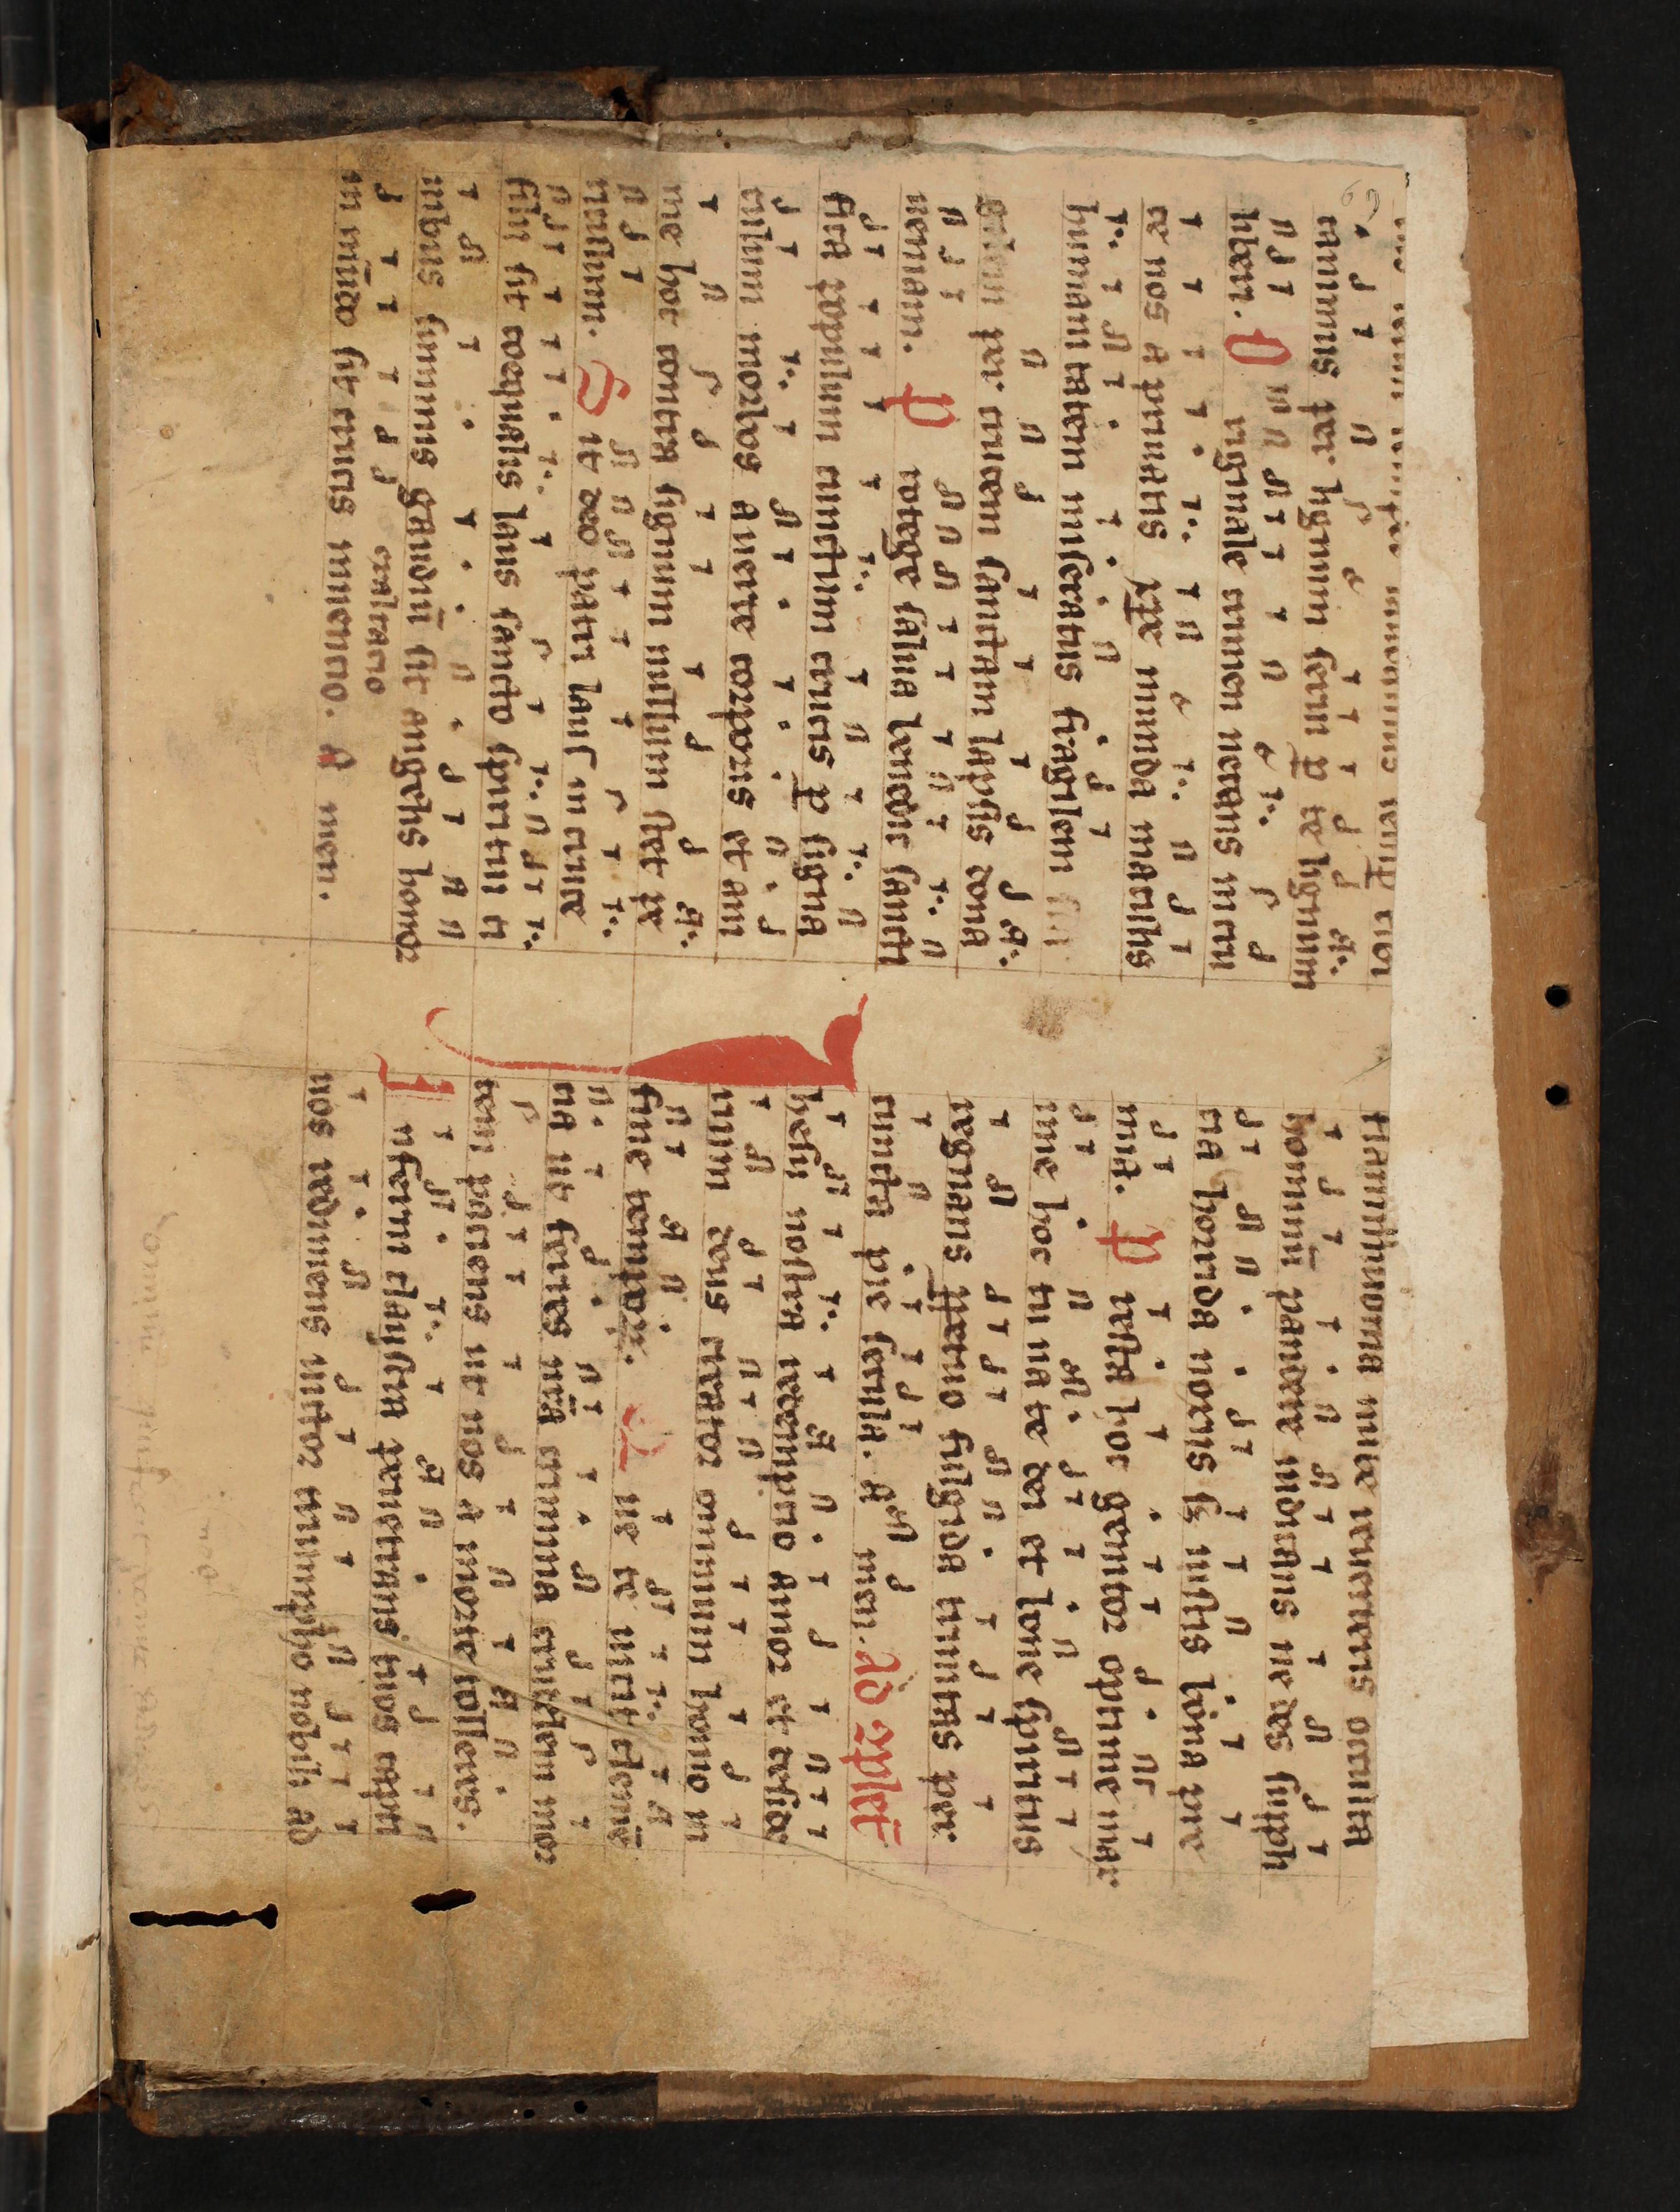 per lignum
liberi. O riginale crimen necans in cru
ce nos a priuatis xpe munda maculis
humanitatem miseratus fragilem
per crucem sanctam lapsis dona
ueniam. P rotege salua benedic sancti
fica populum cunctum crucis p signa
culum morbos auerte corporis et ani
me hoc contra signum nullum stet pe
riculum. S it deo patri laus in cruce
filii sit coequalis laus sancto spiritui ci
uibus summis gaudiū sit angelis honor
exaltacio
in mūdo sit crucis inuencio. a men.
flammiuoma nube reuertens omnia
hominū pandere des suppli
cia horrenda nobis sʒ iustis bona pre
mia. P resta hoc genitor optime maxi
me hoc tu nate dei et bone spiritus
regnans ppetuo fulgida trinitas per
cuncta pie secula. a men. Ad oplet
hesu nostra redempcio amor et deside
rium deus creator omnium homo in
fine tempor. Q ue te uicit clemē
cia ut feres nr̄a crimina crudelem mor
tem paciens ut nos a morte tolleres.
I nferni claustra penetrans tuos capti
uos redimens uictor triumpho nobili ad